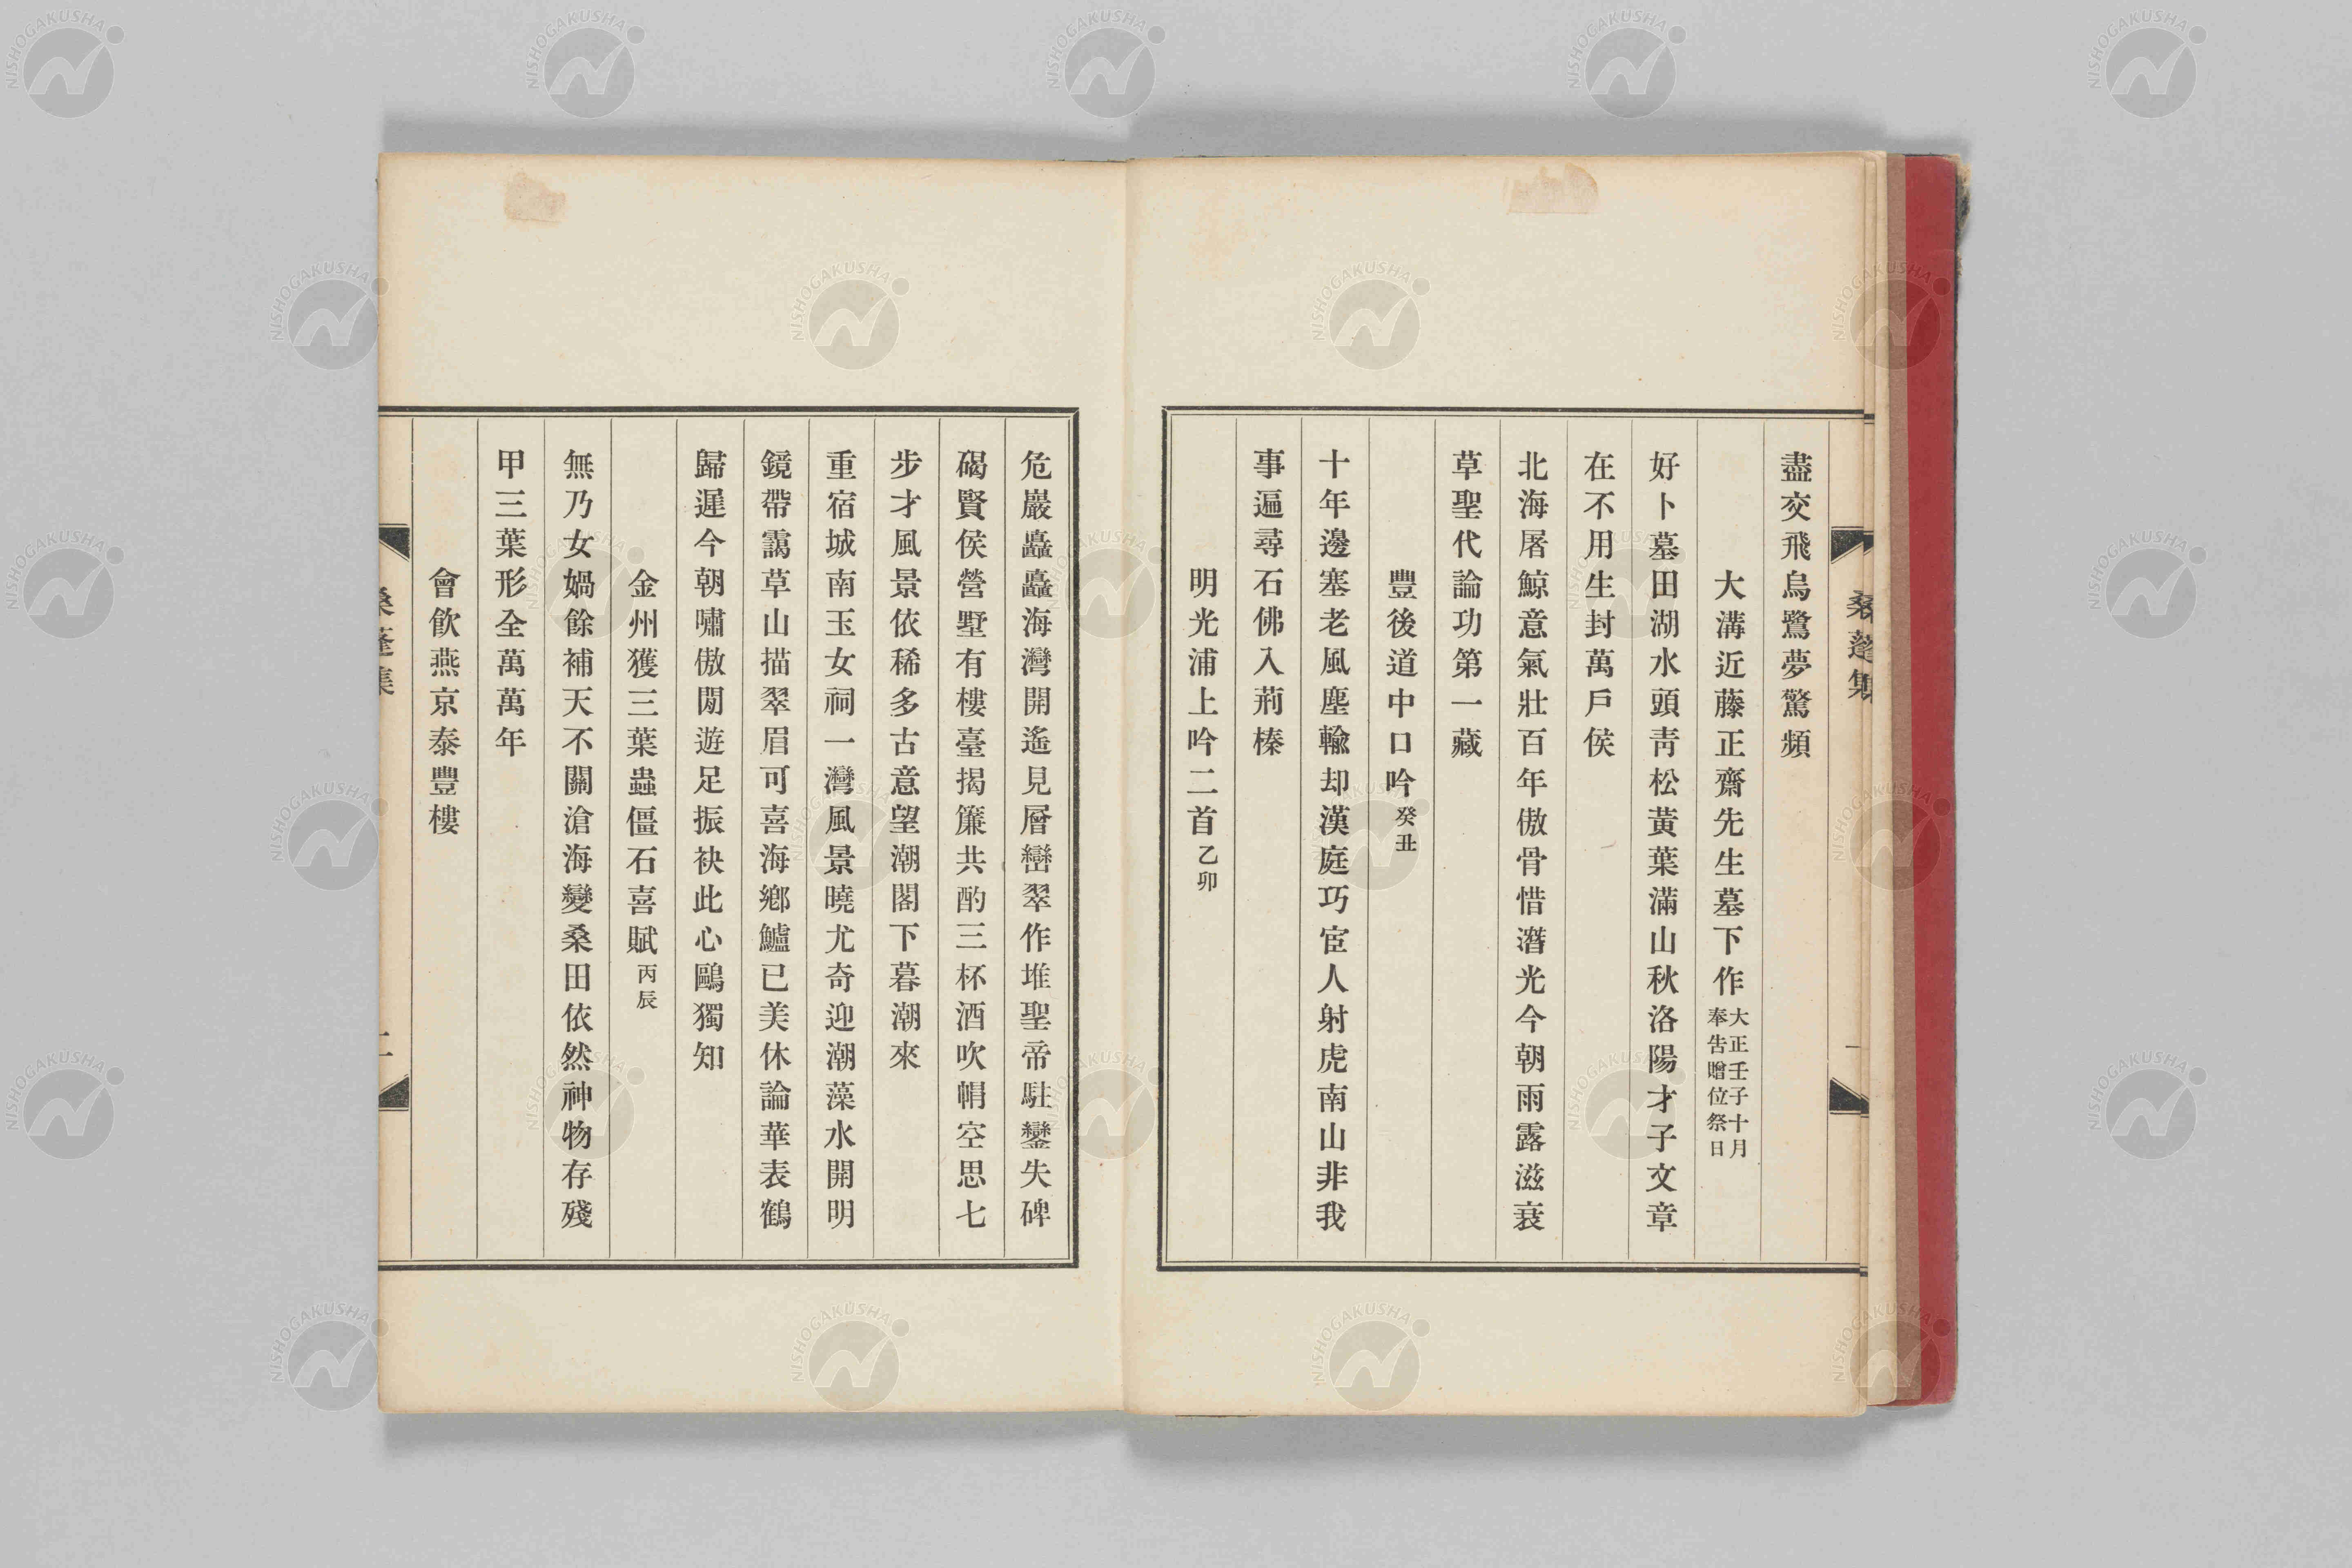 桑蓬集
一
盡交飛烏鷺夢驚頻
大溝近藤正齋先生墓下作 大正壬子十月奉告贈位祭日
好卜墓田湖水頭靑松黃葉滿山秋洛陽才子文章
在不用生封萬戶侯
北海屠鯨意氣壯百年傲骨惜潛光今朝雨露滋衰
草聖代論功第一藏
豐後道中口吟 癸丑
十年邊塞老風塵輸却漢庭巧宦人射虎南山非我
事遍尋石佛入荊榛
明光浦上吟二首 乙卯
危巖矗矗海灣開遙見層巒翠作堆聖帝駐鑾失碑
碣賢侯營墅有樓臺揭簾共酌三杯酒吹帽空思七
步才風景依稀多古意望潮閣下暮潮來
重宿城南玉女祠一灣風景曉尤奇迎潮藻水開明
鏡帶靄草山描翠眉可喜海鄉鱸已美休論華表鶴
歸遲今朝嘯傲閒遊足振袂此心鷗獨知
金州獲三葉蟲僵石喜賦 丙辰
無乃女媧餘補天不關滄海變桑田依然神物存殘
甲三葉形全萬萬年
會飮燕京泰豐樓
桑蓬集
二
NISHOGAKUSHA